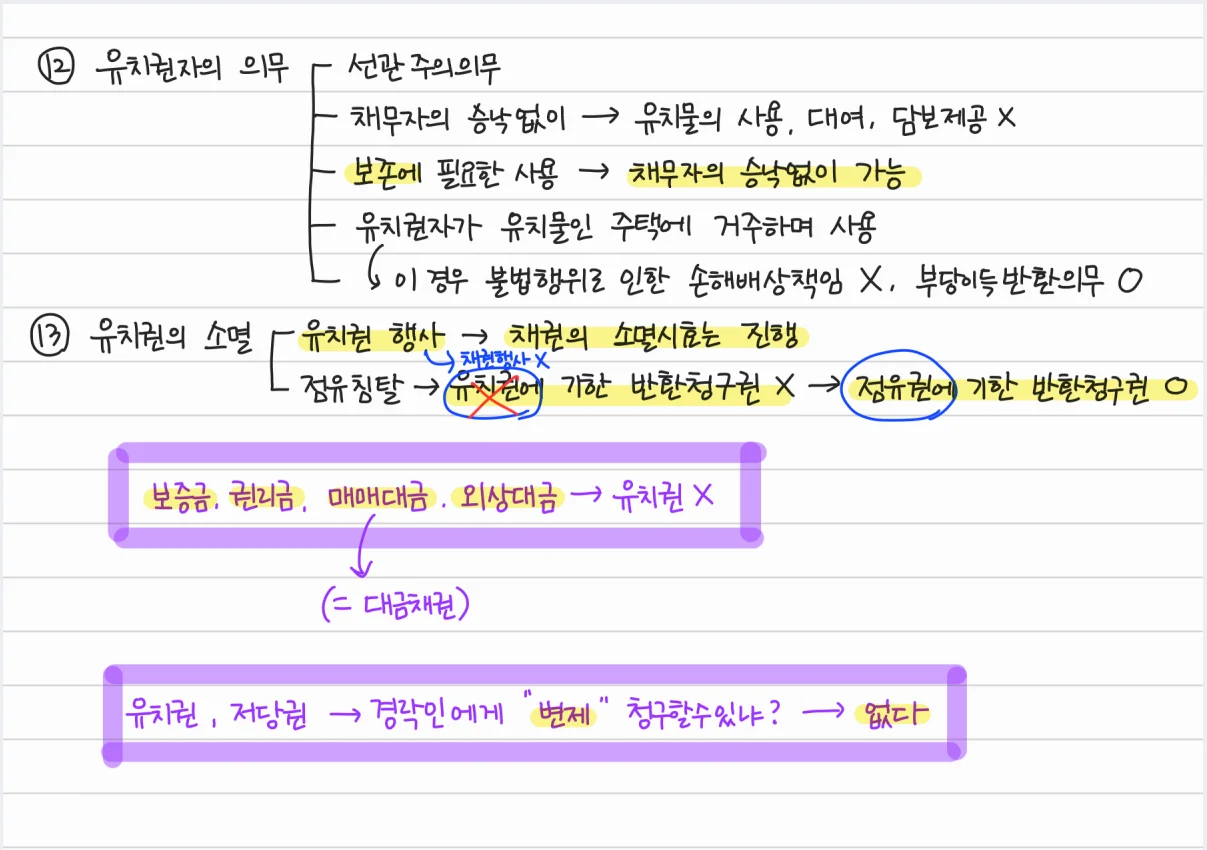 ⑫ 유치권자의 의무 선관주의의무
채무자의 승낙없이 → 유치물의 사용, 대여, 담보제공 X
보존에 필요한 사용 → 채무자의 승낙없이 가능
유치권자가 유치물인 주택에 거주하며 사용
↳ 이 경우 불법행위로 인한 손해배상책임 X, 부당이득반환의무 O
⑬ 유치권의 소멸 유치권 행사 → 채권의 소멸시효는 진행
↳ 채권행사 X
점유침탈 → 유치권에 기한 반환청구권 X → 점유권에 기한 반환청구권 O
보증금, 권리금, 매매대금, 외상대금 → 유치권 X
(= 대금채권)
유치권, 저당권 → 경락인에게 "변제" 청구할수있냐? → 없다